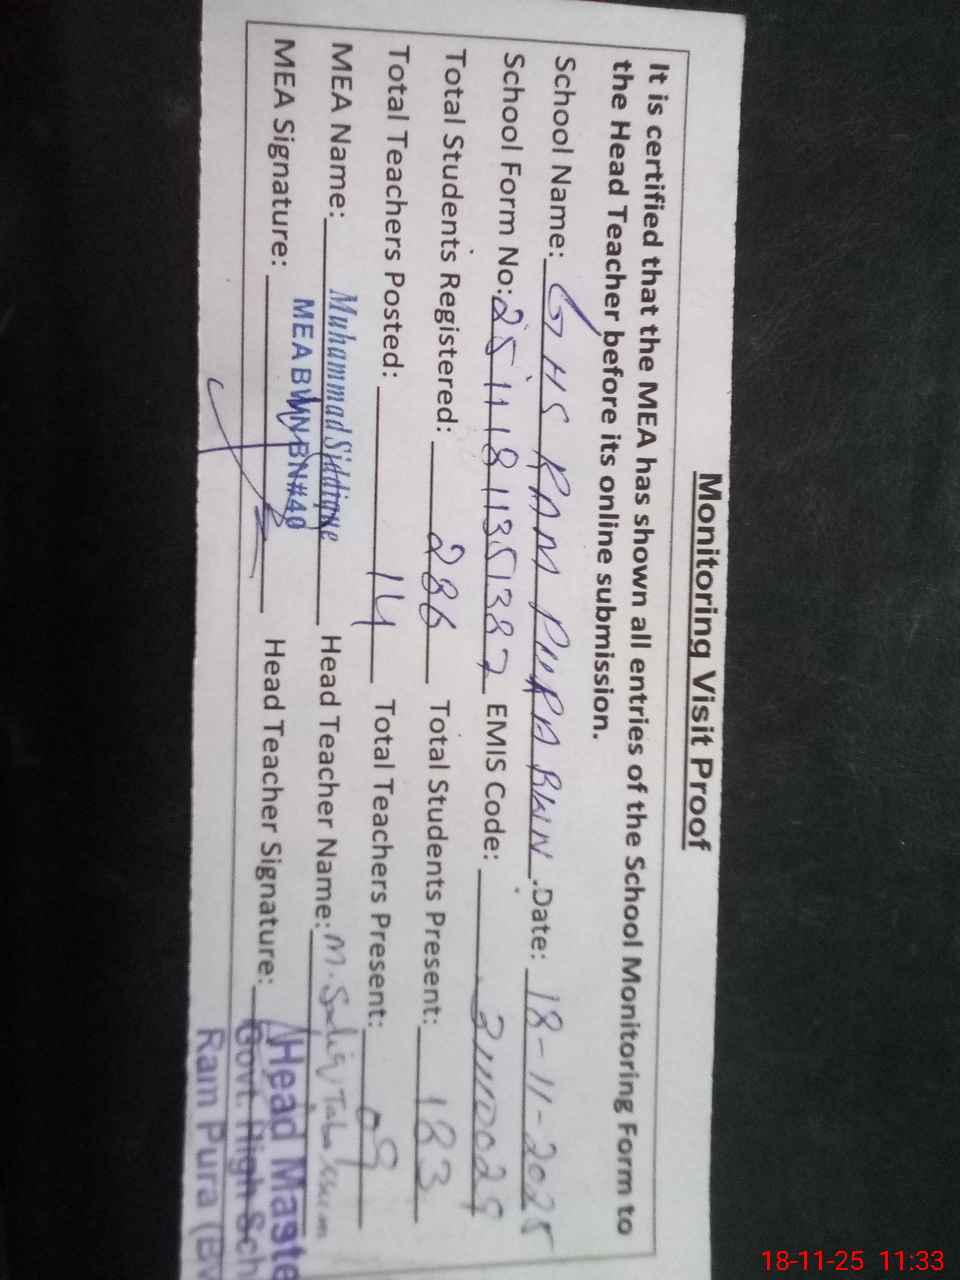 Monitoring Visit Proof
It is certified that the MEA has shown all entries of the School Monitoring Form to
the Head Teacher before its online submission.
School Name: GHS RAM PURA BWN .Date: 18-11-2025
School Form No: 25111811351387 EMIS Code: 31110029
Total Students Registered: 286 Total Students Present: 183
Total Teachers Posted: 14 Total Teachers Present: 09
MEA Name: Muhammad Siddique Head Teacher Name: M. Sadiq Tabassum
MEA BWN BN#40
MEA Signature: Head Teacher Signature:
Head Maste
Govt. High Sch
Ram Pura (BW
18-11-25 11:33